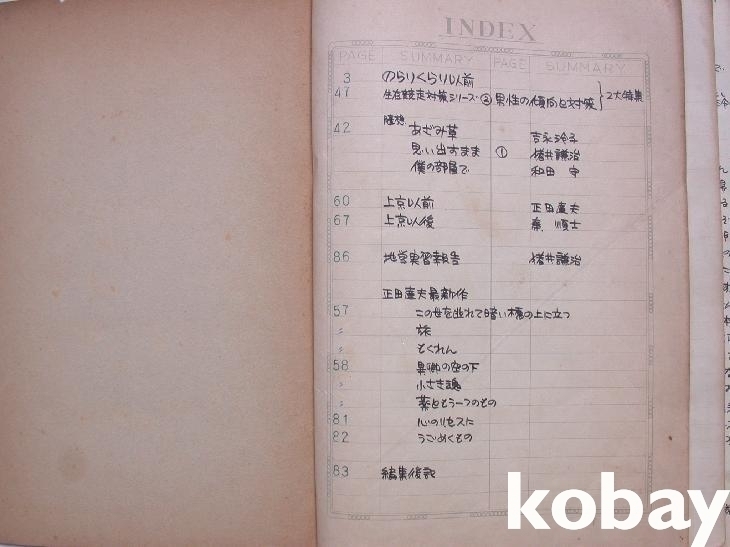 INDEX
PAGE SUMMARY PAGE SUMMARY
3 のらりくらり以前
47 生存競走対策シリーズ② 男性の傾向と対策 } 2大特集
42 随想
あざみ草 吉永玲子
思い出すまま ① 猪井謙治
僕の部屋で 和田 守
60 上京以前 正田直夫
67 上京以後 秦 順士
86 地学実習報告 猪井謙治
正田直夫最新作
57 この世を逃れて暗い橋の上に立つ
〃 旅
〃 もくれん
58 異郷の空の下
〃 小さき魂
〃 薬ともう一つのもの
81 心のリセスに
82 うごめくもの
83 編集後記
kobay